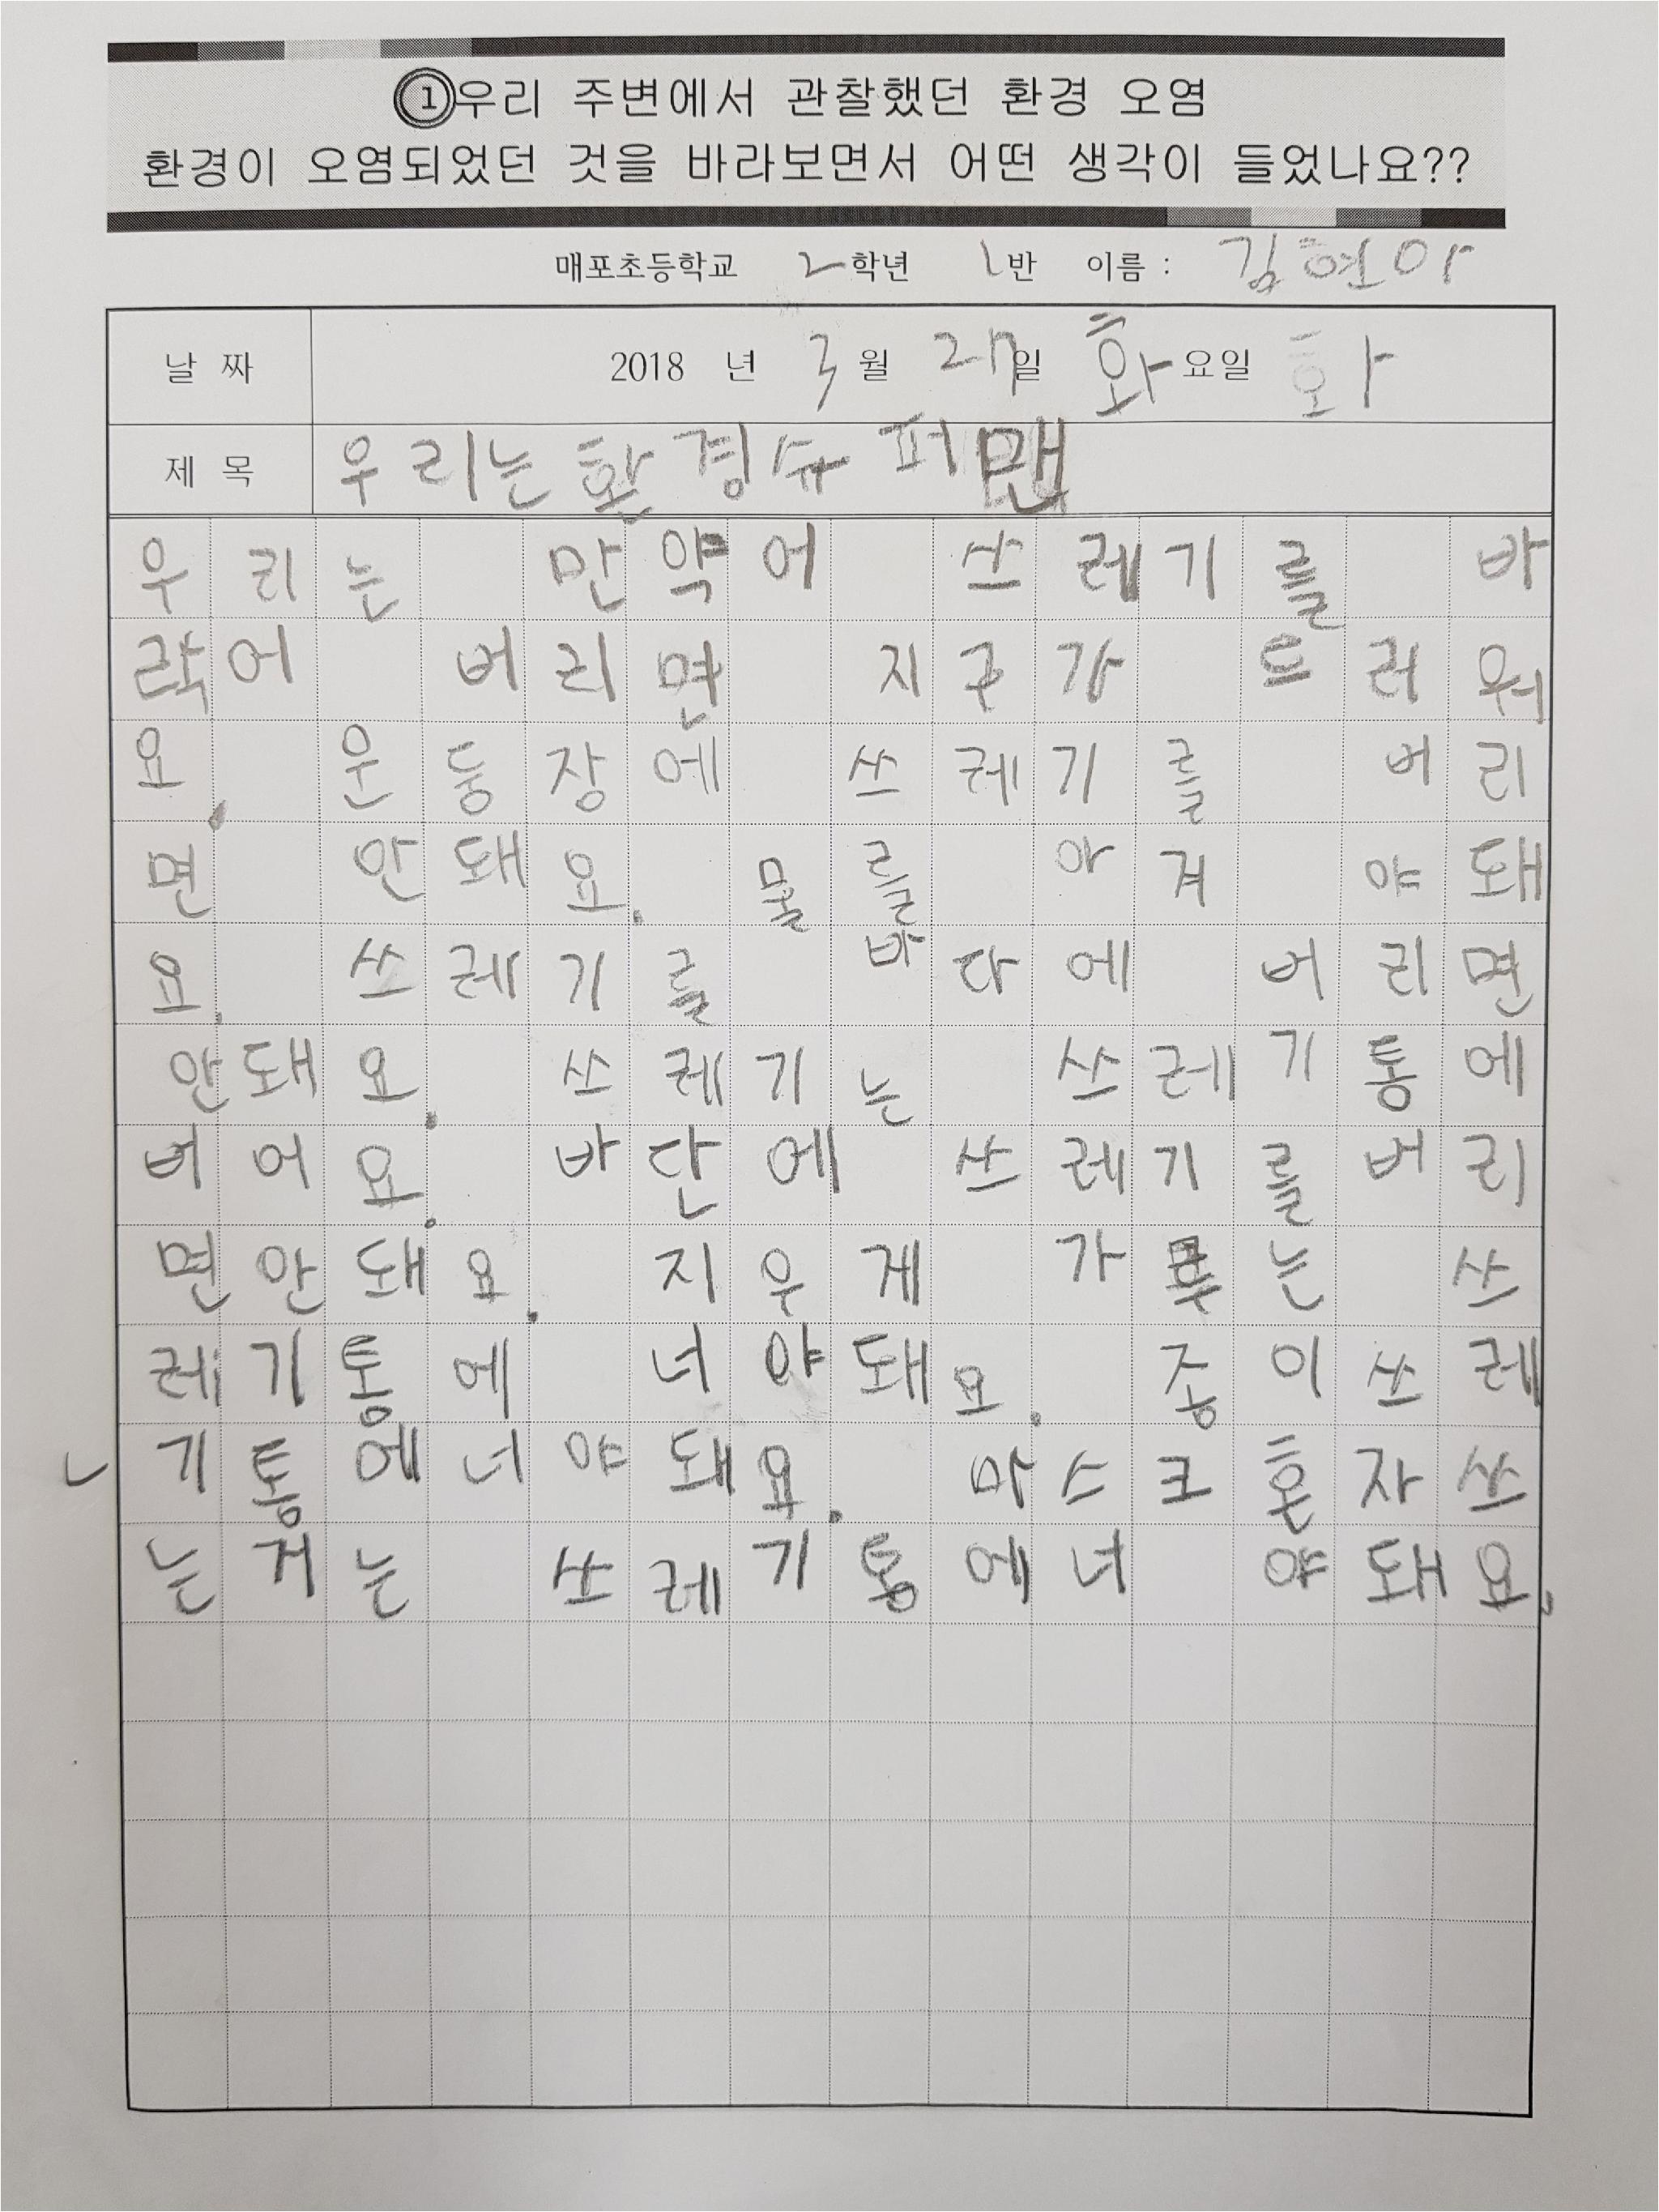 ①우리 주변에서 관찰했던 환경 오염
환경이 오염되었던 것을 바라보면서 어떤 생각이 들었나요??
매포초등학교 2학년 1반 이름 : 김현아
날 짜 2018 년 3월 27일 화요일 화
제 목 우리는환경슈퍼맨
우리는 만약어 쓰레기를 바
락어 버리면 지구가 드러워
요. 운둥장에 쓰레기를 버리
면 안돼요. 물를 아겨 야돼
요. 쓰레기를 바다에 버리면
안돼요. 쓰레기는 쓰레기통에
버어요. 바단에 쓰레기를버리
면안돼요. 지우게 가루는 쓰
레기통에 너야돼요. 종이쓰레
기통에너야돼요. 마스크혼자쓰
는거는 쓰레기통에너 야돼요.